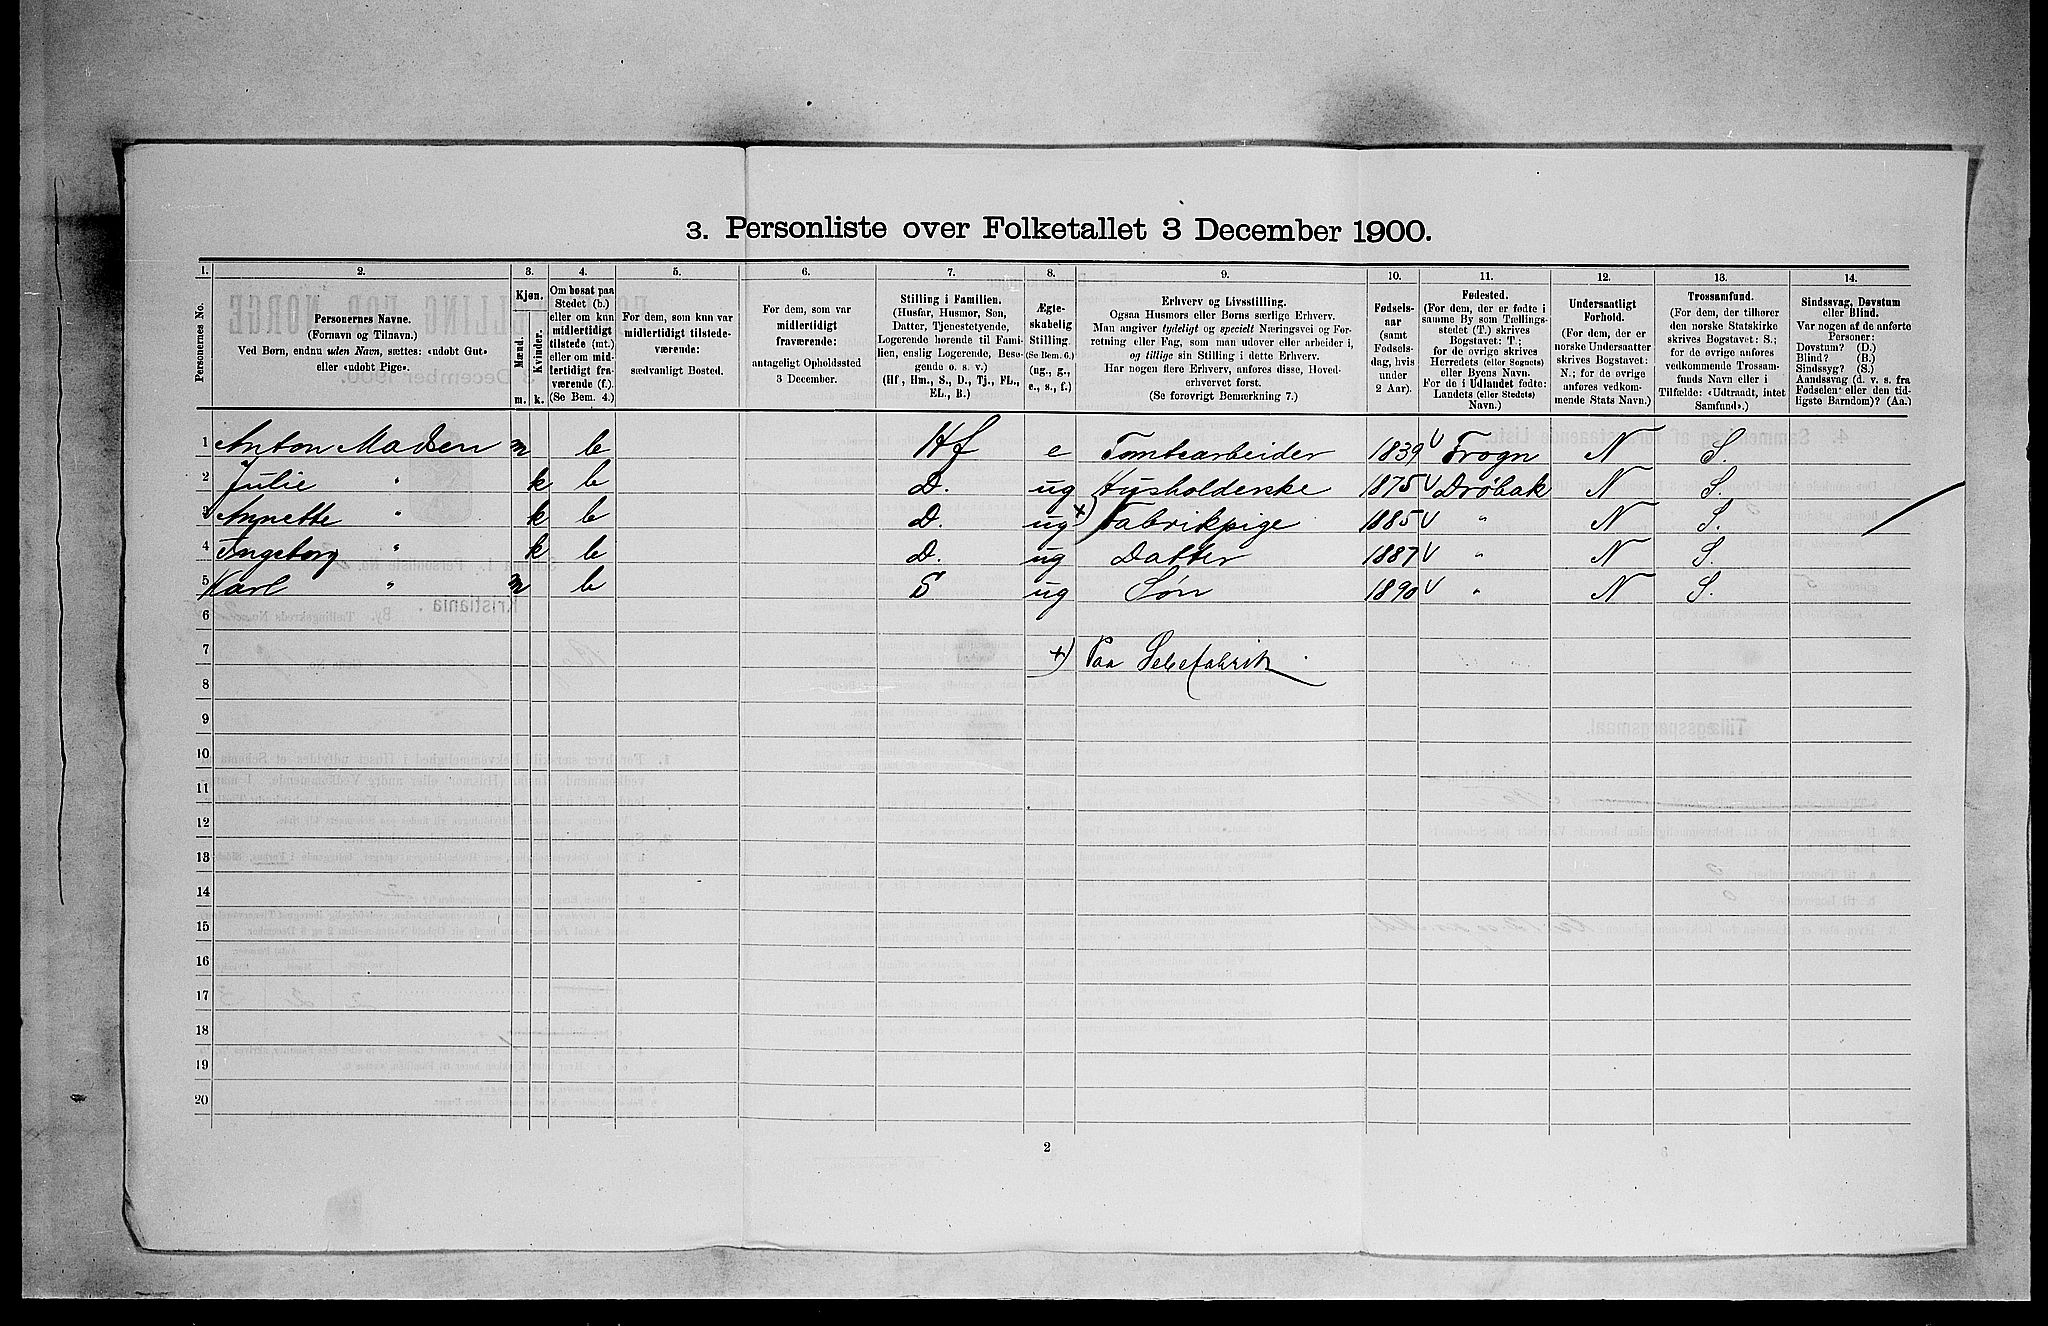 3. Personliste over Folketallet 3 December 1900.
1. 2. 3. 4. 5. 6. 7. 8. 9. 10. 11. 12. 13. 14.
Personernes No.
Personernes Navne.
(Fornavn og Tilnavn.)
Ved Børn, endnu uden Navn, sættes: «udøbt Gut»
eller «udøbt Pige».
Kjøn.
Mænd.
Kvinder.
m. k.
Om bosat paa
Stedet (b.)
eller om kun
midlertidigt
tilstede (mt.)
eller om mid-
lertidigt fra-
værende (f.)
(Se Bem. 4.)
For dem, som kun var
midlertidigt tilstede-
værende:
sædvanligt Bosted.
For dem, som var
midlertidigt
fraværende:
antageligt Opholdssted
3 December.
Stilling i Familien.
(Husfar, Husmor, Søn,
Datter, Tjenestetyende,
Logerende hørende til Fami-
lien, enslig Logerende, Besø-
gende o. s. v.)
(Hf, Hm., S., D., Tj., FL.,
EL., B.)
Ægte-
skabelig
Stilling.
(Se Bem. 6.)
(ug., g.,
e., s., f.)
Erhverv og Livsstilling.
Ogsaa Husmors eller Børns særlige Erhverv.
Man angiver tydeligt og specielt Næringsvei og For-
retning eller Fag, som man udøver eller arbeider i,
og tillige sin Stilling i dette Erhverv.
Har nogen flere Erhverv, anføres disse, Hoved-
erhvervet først.
(Se forøvrigt Bemærkning 7.)
Fødsels-
aar
(samt
Fødsels-
dag, hvis
under
2 Aar).
Fødested.
(For dem, der er fødte i
samme By som Tællings-
stedet (T.) skrives
Bogstavet: T.;
for de øvrige skrives
Herredets (eller Sognets)
eller Byens Navn.
For de i Udlandet fødte:
Landets (eller Stedets)
Navn.)
Undersaatligt
Forhold.
(For dem, der er
norske Undersaatter
skrives Bogstavet:
N.; for de øvrige
anføres vedkom-
mende Stats Navn.)
Trossamfund.
(For dem, der tilhører
den norske Statskirke
skrives Bogstavet: S.;
for de øvrige anføres
vedkommende Trossam-
funds Navn eller i
Tilfælde: «Udtraadt, intet
Samfund».)
Sindssvag, Døvstum
eller Blind.
Var nogen af de anførte
Personer:
Døvstum? (D.)
Blind? (B.)
Sindssyg? (S.)
Aandssvag (d. v. s. fra
Fødselen eller den tid-
ligste Barndom)? (Aa.)
1 Anton Madsen m b Hf e Tomtearbeider 1839 Frogn N S.
2 Julie " k b D. ug Husholderske 1875 Drøbak N S.
3 Annette " k b D. ug +) Fabrikpige 1885 " N S.
4 Ingeborg " k b D. ug Datter 1887 " N S.
5 Karl " m b S ug Søn 1890 " N S.
6
7 +) Paa Sebefabrik
8
9
10
11
12
13
14
15
16
17
18
19
20
2